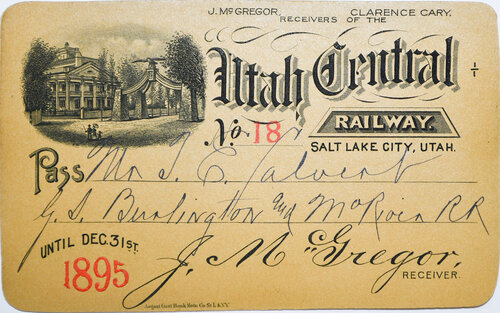 J. McGREGOR, CLARENCE CARY,
RECEIVERS OF THE
Utah Central
RAILWAY.
No. 18
SALT LAKE CITY, UTAH.
Pass Mr T. C. Calvert
G. S. Burlington and Mo River RR
UNTIL DEC. 31ST. 1895
J. McGregor,
RECEIVER.